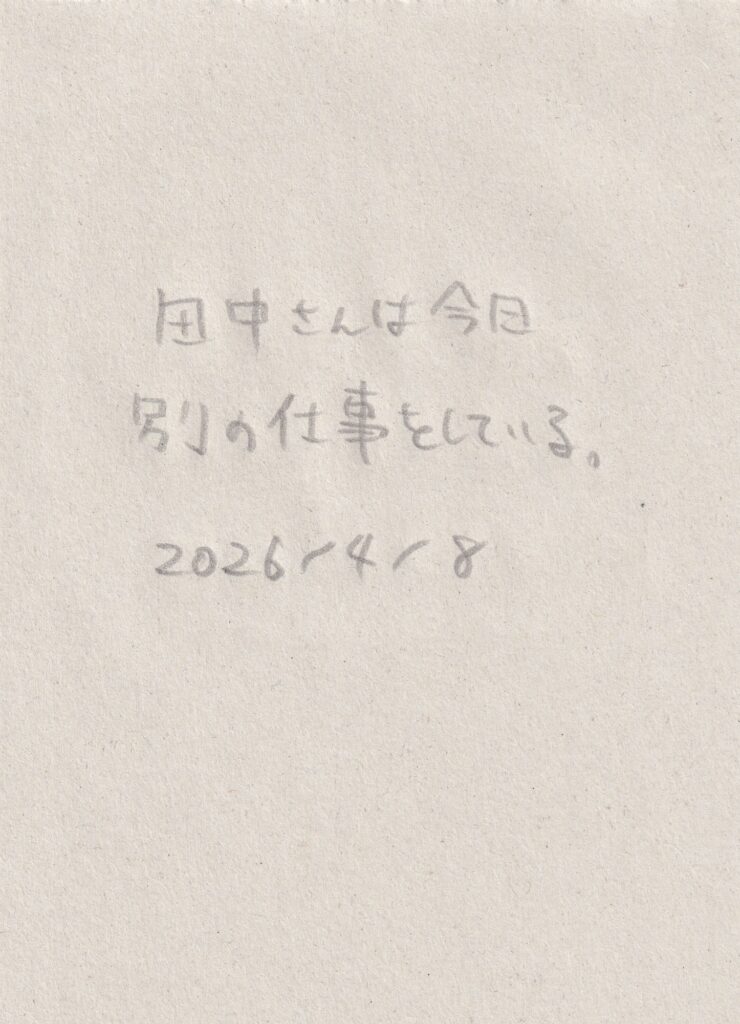 田中さんは今日
別の仕事をしている。
2026/4/8